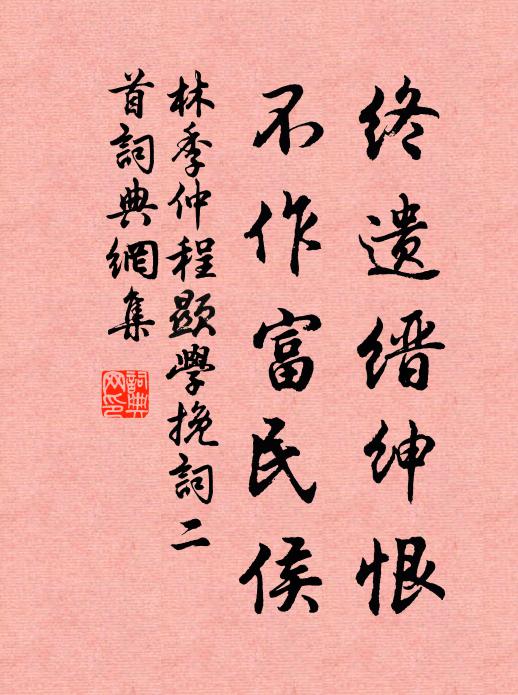 终遗缙绅恨
不作富民侯
林季仲程顯學挽詞二
首詞典網集
詞典
网印